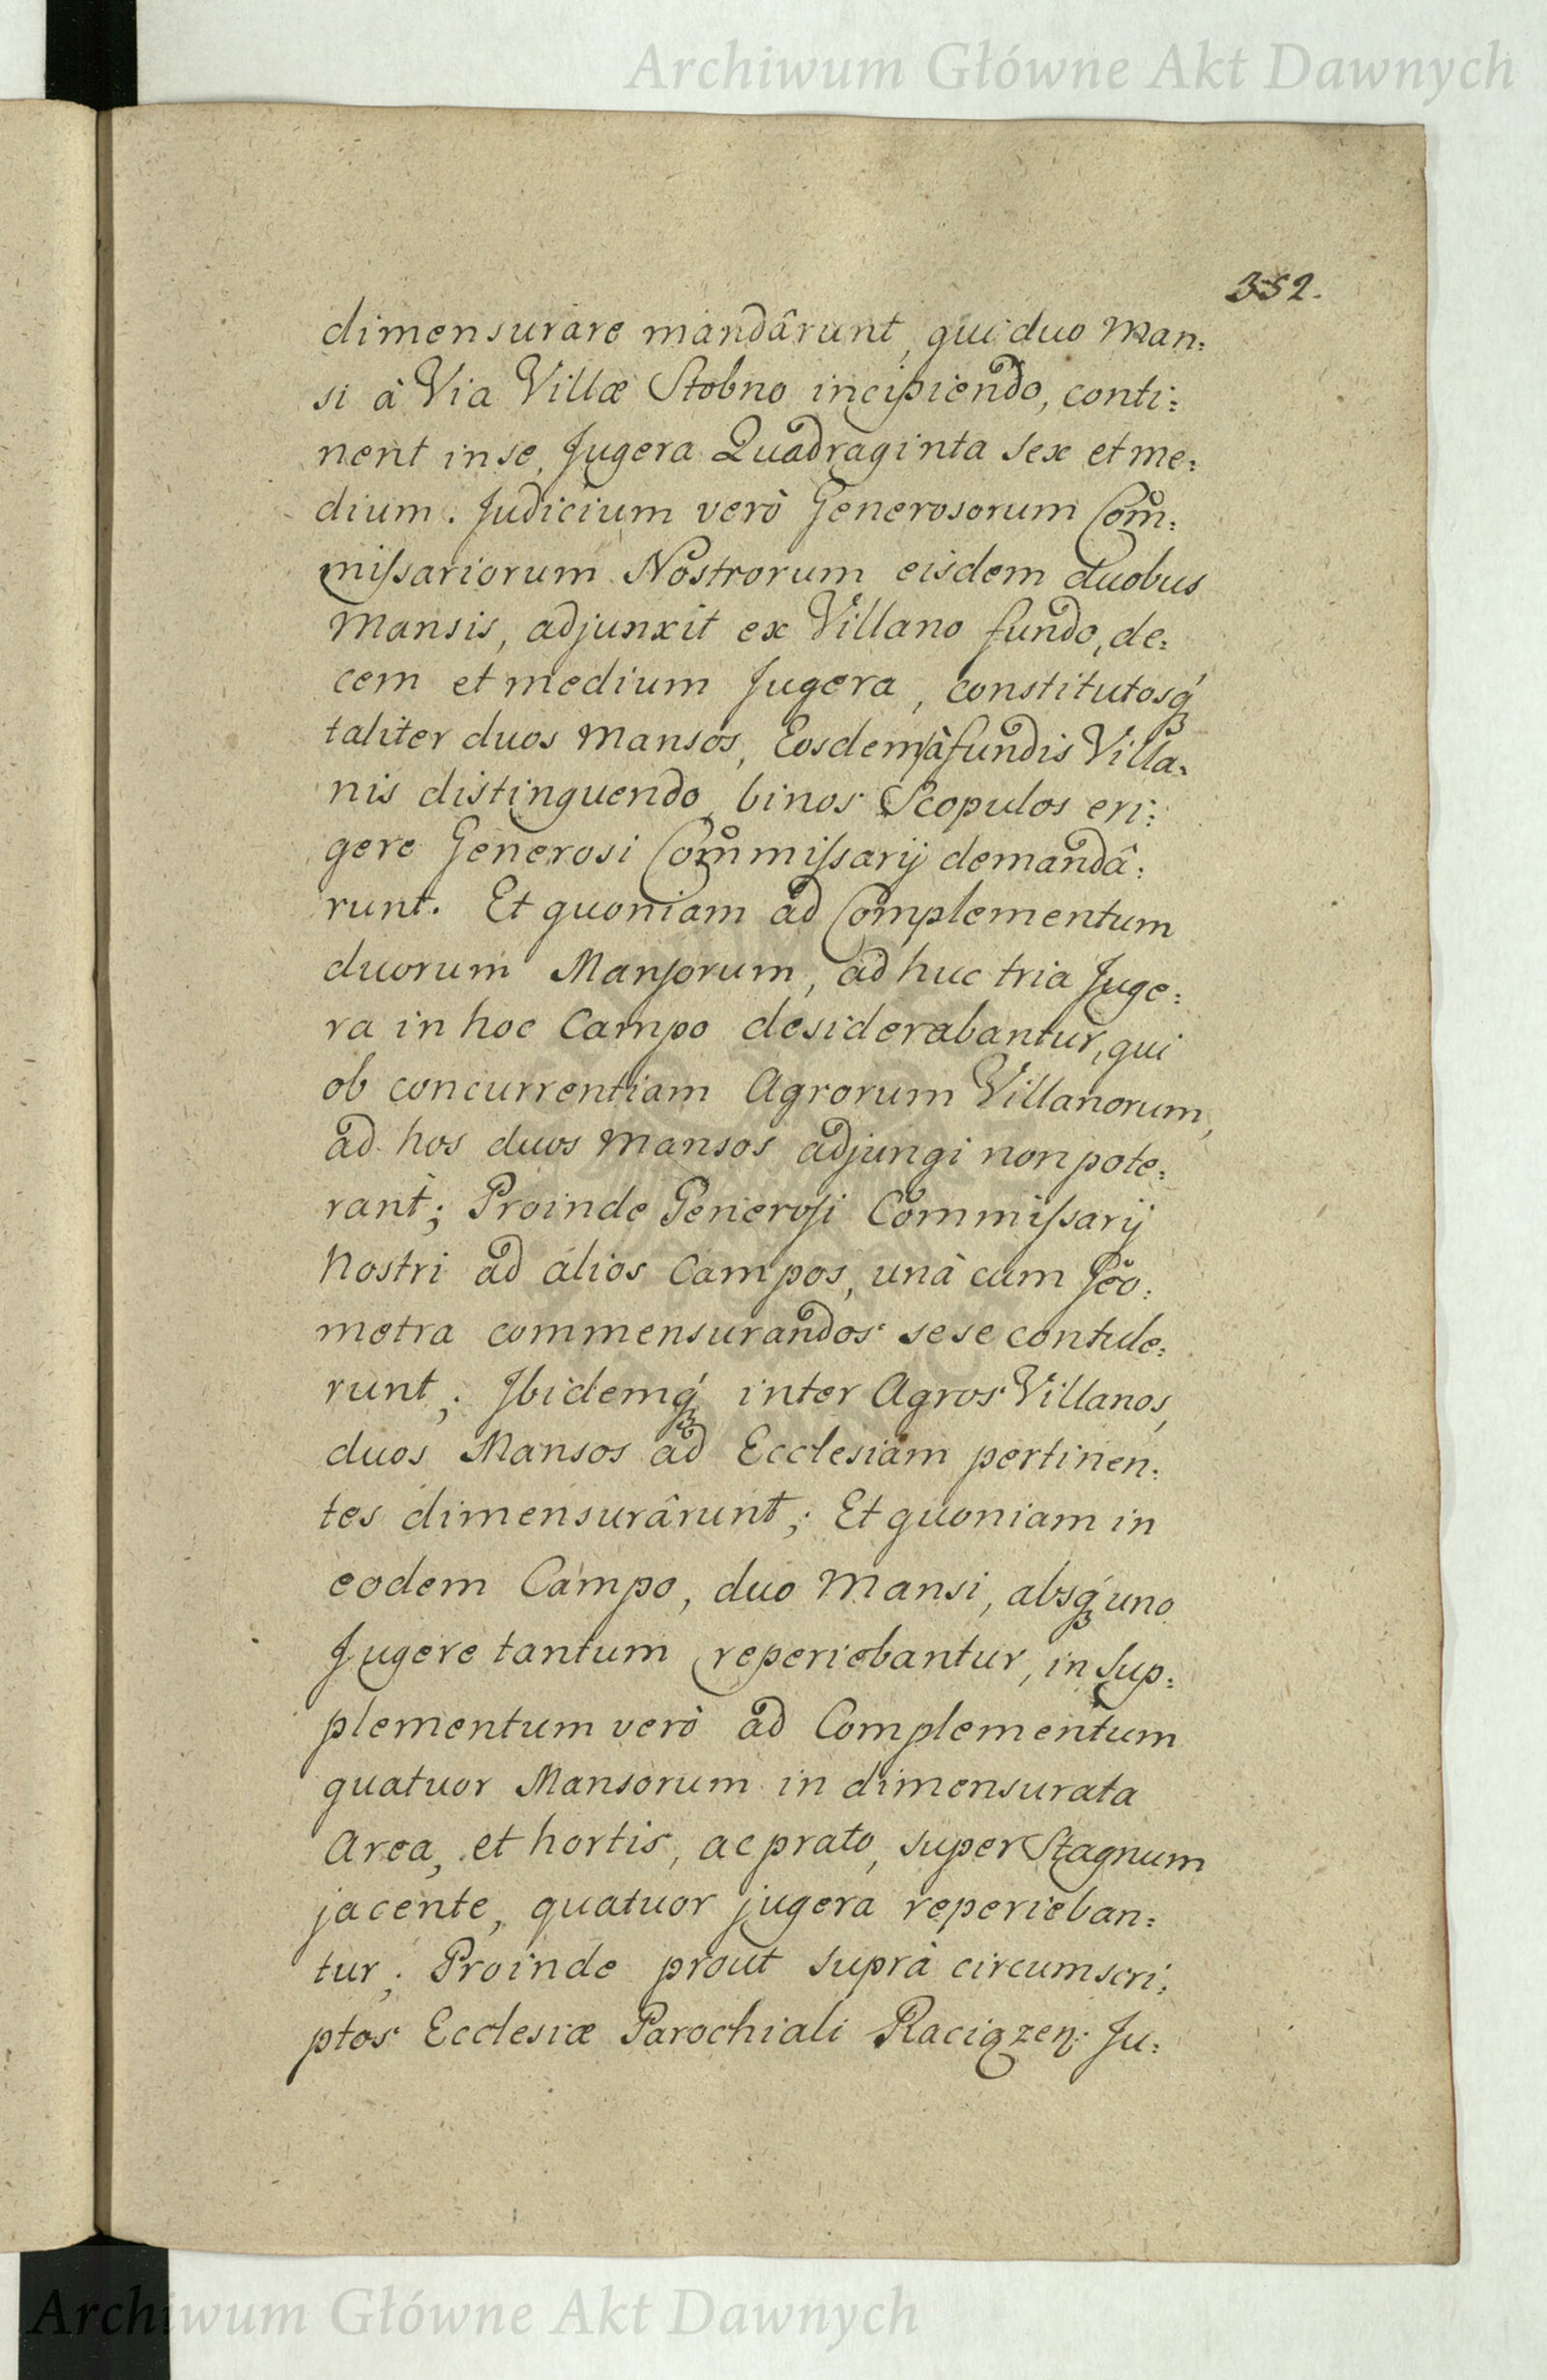 Archiwum Główne Akt Dawnych
352.
dimensurare mandârunt, qui duo Man:
si à Via Villæ Stobno incipiendo, conti:
nent in se, Jugera Quadraginta sex et me:
dium. Judicium verò Generosorum Com:
miſsariorum Nostrorum eisdem duobus
Mansis, adjunxit ex Villano fundo, de:
cem et medium Jugera, constitutosq́ꝫ
taliter duos Mansos, Eosdem à fundis Villa:
nis distinguendo, binos Scopulos eri:
gere Generosi Commiſsarij demandâ:
runt. Et quoniam ad Complementum
duorum Manſorum, ad huc tria Juge:
ra in hoc Campo desiderabantur, qui
ob concurrentiam Agrorum Villanorum,
ad hos duos Mansos adjungi non pote:
rant; Proinde Generoſi Commiſsarij
Nostri ad alios Campos, unà cum Geo:
metra commensurandos sese contule:
runt; Jbidemq́ꝫ inter Agros Villanos,
duos Mansos ad Ecclesiam pertinen:
tes dimensurârunt; Et quoniam in
eodem Campo, duo Mansi, absq́ꝫ uno
Jugere tantum reperiebantur, in Sup:
plementum verò ad Complementum
quatuor Mansorum in dimensurata
Area, et hortis, ac prato, super Stagnum
jacente, quatuor jugera reperieban:
tur; Proinde prout suprà circumscri:
ptos Ecclesiæ Parochiali Raciązen: Ju:
Archiwum Główne Akt Dawnych